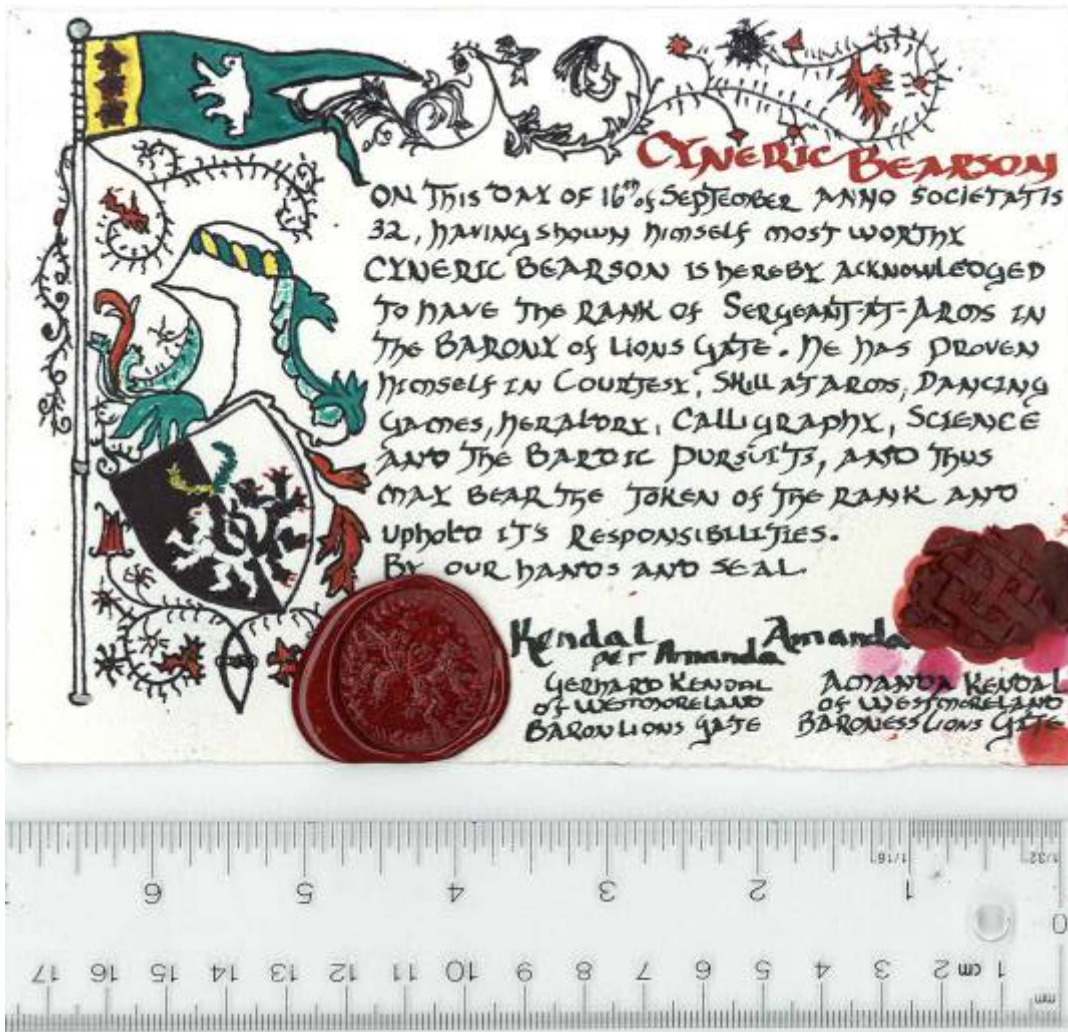 CYNERIC BEARSON
ON THIS DAY OF 16th of SEPTEMBER ANNO SOCIETATIS
32, HAVING SHOWN HIMSELF MOST WORTHY
CYNERIC BEARSON IS HEREBY ACKNOWLEDGED
TO HAVE THE RANK OF SERGEANT-AT-ARMS IN
THE BARONY OF LIONS GATE. HE HAS PROVEN
HIMSELF IN COURTESY, SKILL AT ARMS, DANCING
GAMES, HERALDRY, CALLIGRAPHY, SCIENCE
AND THE BARDIC PURSUITS, AND THUS
MAY BEAR THE TOKEN OF THE RANK AND
UPHOLD IT'S RESPONSIBILITIES.
BY OUR HANDS AND SEAL
Kendal
per Amanda
GERHARD KENDAL
OF WESTMORELAND
BARON LIONS GATE
Amanda
AMANDA KENDAL
OF WESTMORELAND
BARONESS LIONS GATE
1/16 1/32
6 5 4 3 2 1
0
17 16 15 14 13 12 11 10 9 8 7 6 5 4 3 2 cm 1
mm